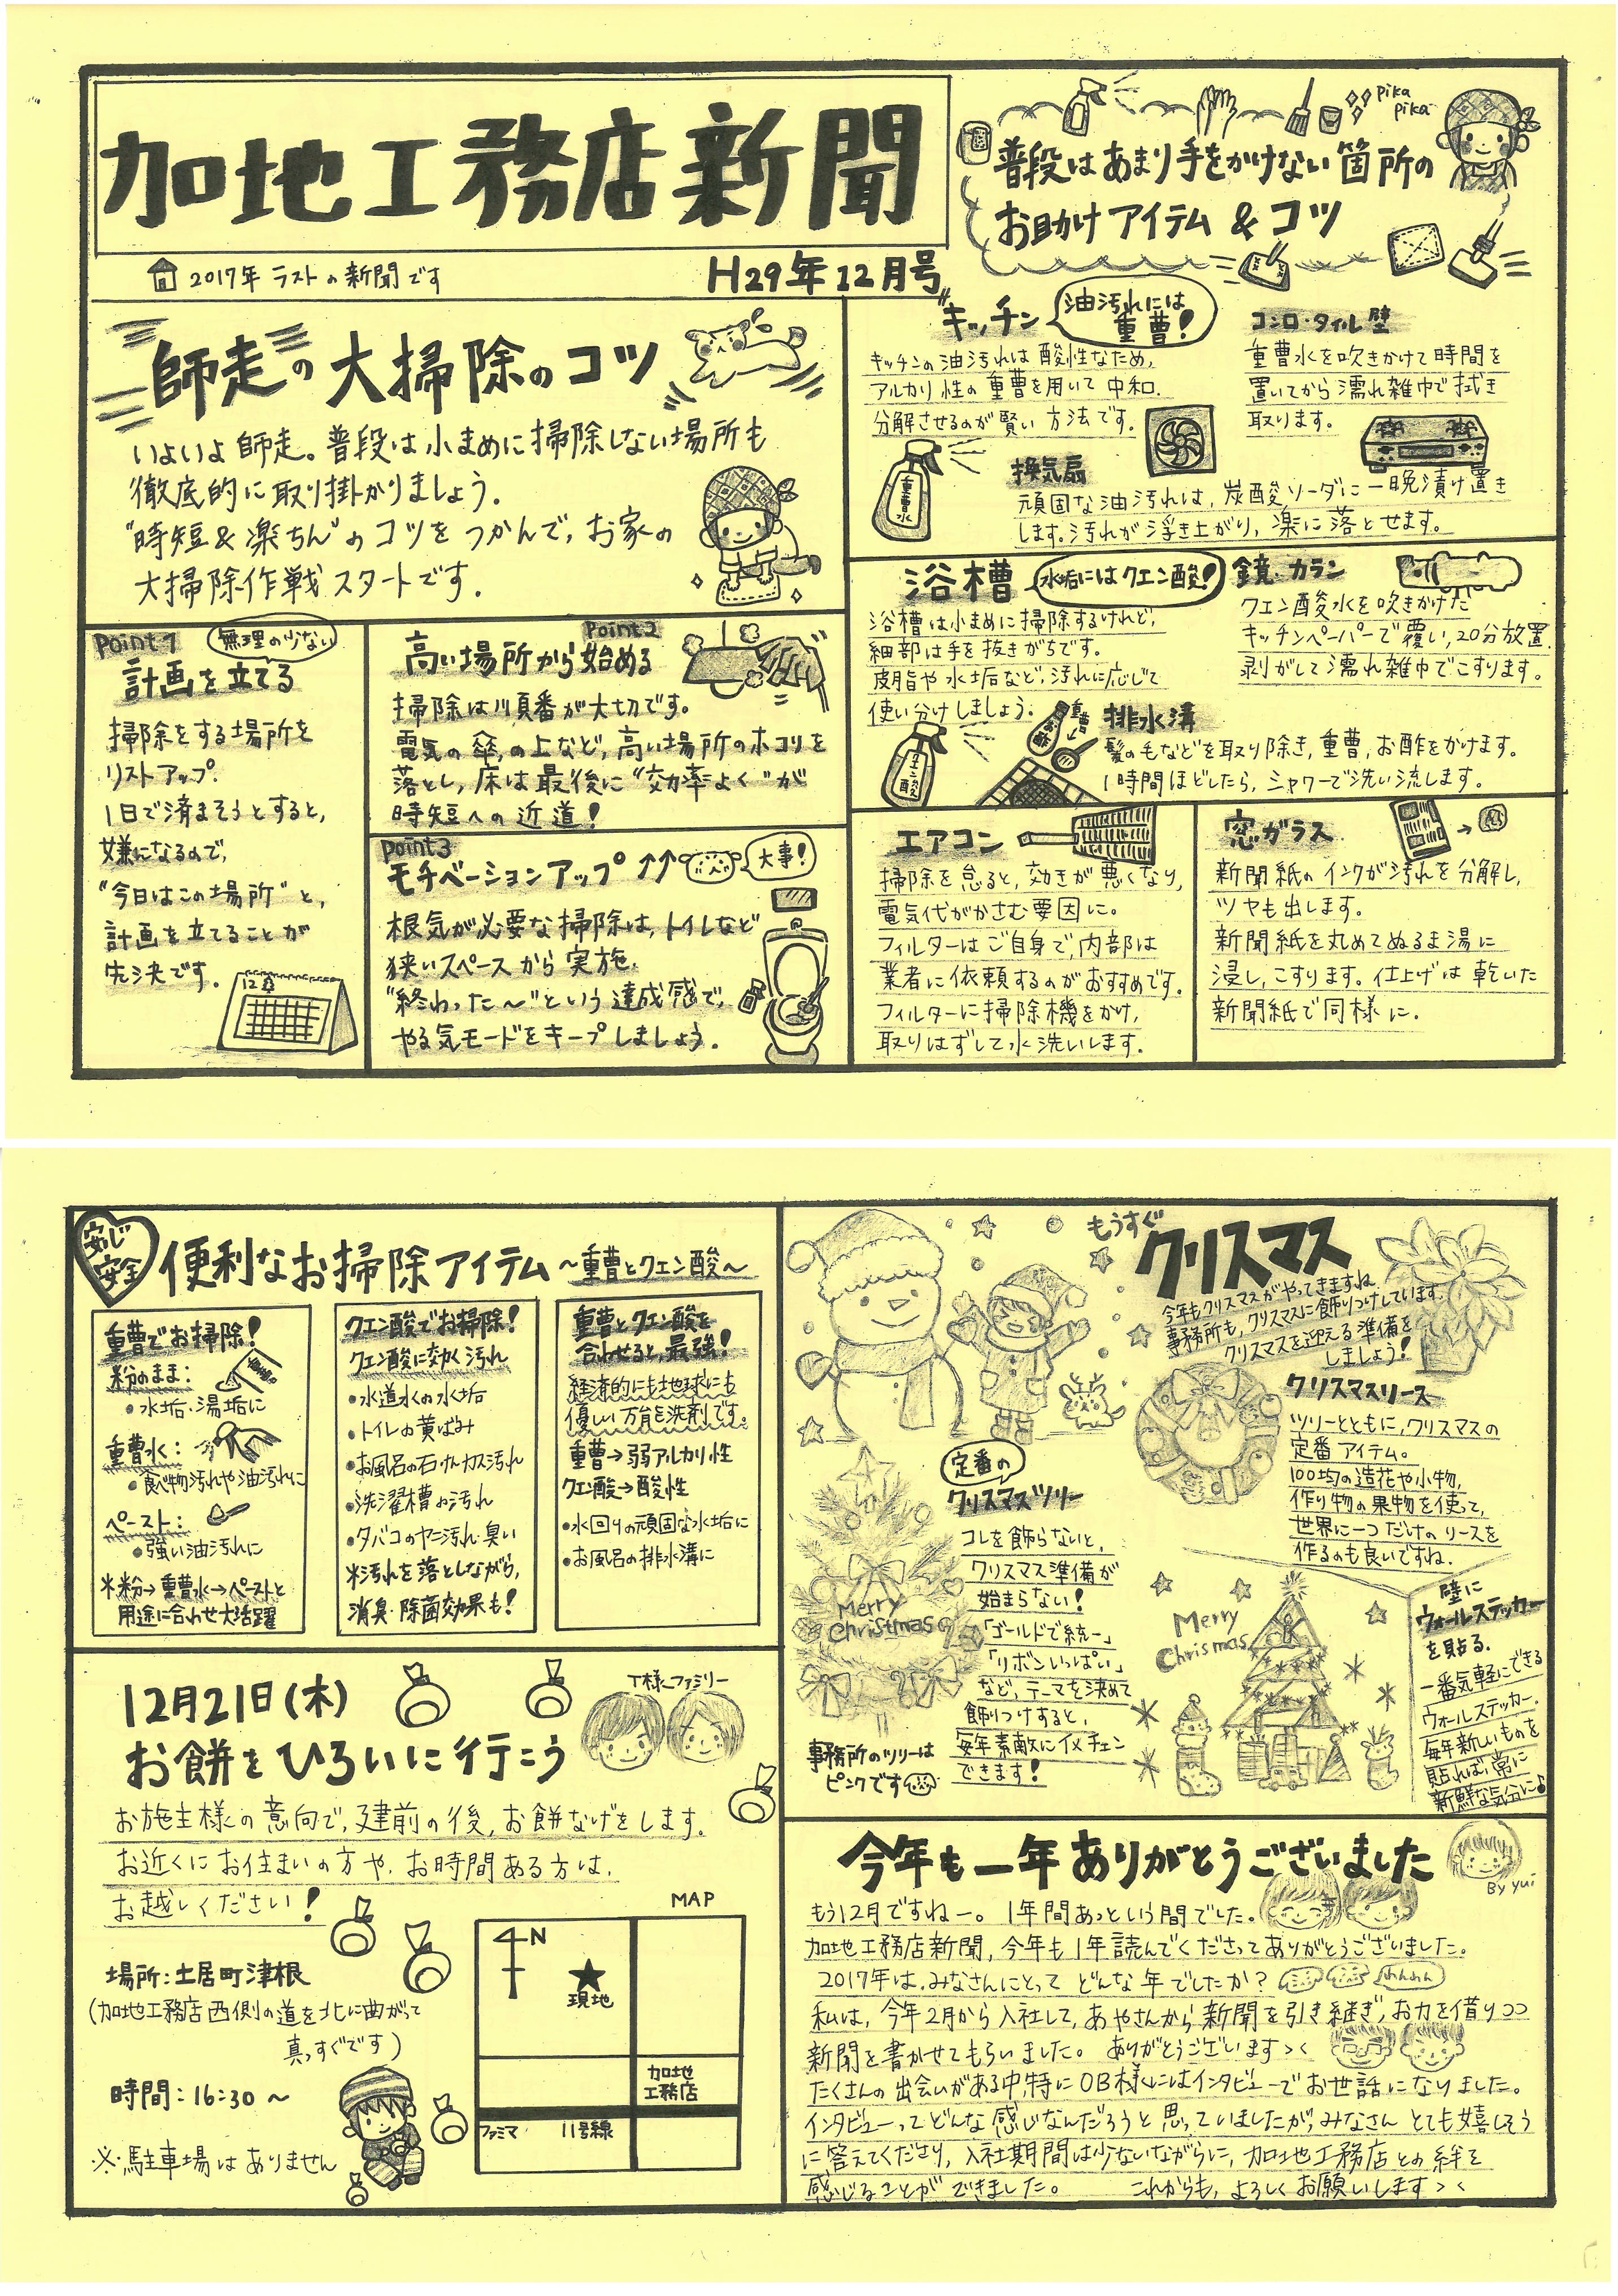 加地工務店新聞
2017年 ラストの新聞です
H29年12月号
師走の大掃除のコツ
いよいよ師走。普段は小まめに掃除しない場所も
徹底的に取り掛かりましょう。
"時短&楽ちん"のコツをつかんで、お家の
大掃除作戦スタートです。
Point1
無理の少ない
計画を立てる
掃除をする場所を
リストアップ。
1日で済まそうとすると、
嫌になるので、
"今日はこの場所"と、
計画を立てることが
先決です。
12月
Point2
高い場所から始める
掃除は順番が大切です。
電気の傘の上など、高い場所のホコリを
落とし、床は最後に"効率よく"が
時短への近道!
Point3
モチベーションアップ↑↑
大事!
根気が必要な掃除は、トイレなど
狭いスペースから実施。
"終わった〜"という達成感で、
やる気モードをキープしましょう。
pika
pika
普段はあまり手をかけない箇所の
お助けアイテム & コツ
キッチン
油汚れには
重曹!
キッチンの油汚れは酸性なため、
アルカリ性の重曹を用いて中和。
分解させるのが賢い方法です。
重曹水
コンロ・タイル壁
重曹水を吹きかけて時間を
置いてから濡れ雑巾で拭き
取ります。
換気扇
頑固な油汚れは、炭酸ソーダに一晩漬け置き
します。汚れが浮き上がり、楽に落とせます。
浴槽
水垢にはクエン酸!
浴槽は小まめに掃除するけれど、
細部は手を抜きがちです。
皮脂や水垢など、汚れに応じて
使い分けしましょう。
クエン酸
鏡・カラン
クエン酸水を吹きかけた
キッチンペーパーで覆い、20分放置。
剥がして濡れ雑巾でこすります。
重曹
お酢
排水溝
髪の毛などを取り除き、重曹、お酢をかけます。
1時間ほどしたら、シャワーで洗い流します。
エアコン
掃除を怠ると、効きが悪くなり、
電気代がかさむ要因に。
フィルターはご自身で、内部は
業者に依頼するのがおすすめです。
フィルターに掃除機をかけ、
取りはずして水洗いします。
窓ガラス
新聞紙のインクが汚れを分解し、
ツヤも出します。
新聞紙を丸めてぬるま湯に
浸し、こすります。仕上げは乾いた
新聞紙で同様に。
安心
安全
便利なお掃除アイテム 〜重曹とクエン酸〜
重曹でお掃除!
粉のまま:
・水垢・湯垢に
重曹水:
・食べ物汚れや油汚れに
ペースト:
・強い油汚れに
*粉→重曹水→ペーストと
用途に合わせ大活躍
クエン酸でお掃除!
クエン酸に効く汚れ
・水道水の水垢
・トイレの黄ばみ
・お風呂の石けんカス汚れ
・洗濯槽の汚れ
・タバコのヤニ汚れ・臭い
*汚れを落としながら、
消臭・除菌効果も!
重曹とクエン酸を
合わせると、最強!
経済的にも地球にも
優しい万能な洗剤です。
重曹→弱アルカリ性
クエン酸→酸性
・水回りの頑固な水垢に
・お風呂の排水溝に
12月21日(木)
お餅をひろいに行こう
T様ファミリー
お施主様の意向で、建前の後、お餅なげをします。
お近くにお住まいの方や、お時間ある方は、
お越しください!
場所:土居町津根
(加地工務店西側の道を北に曲がって
真っすぐです)
時間:16:30〜
※駐車場はありません
MAP
N
現地
加地
工務店
ファミマ
11号線
もうすぐ
クリスマス
今年もクリスマスがやってきますね。
事務所も、クリスマスに飾りつけしています。
クリスマスを迎える準備を
しましょう!
クリスマスリース
ツリーとともに、クリスマスの
定番アイテム。
100均の造花や小物、
作り物の果物を使って、
世界に一つだけのリースを
作るのも良いですね。
定番の
クリスマスツリー
コレを飾らないと、
クリスマス準備が
始まらない!
「ゴールドで統一」
「リボンいっぱい」
など、テーマを決めて
飾りつけすると、
毎年素敵にイメチェン
できます!
Merry
Christmas
事務所のツリーは
ピンクです
Merry
Chrismas
壁に
ウォールステッカー
を貼る。
一番気軽にできる
ウォールステッカー。
毎年新しいものを
貼れば、常に
新鮮な気分に♪
今年も一年ありがとうございました
By yui
もう12月ですねー。1年間あっという間でした。
加地工務店新聞、今年も1年読んでくださってありがとうございました。
2017年は、みなさんにとってどんな年でしたか?
わんわん
私は、今年2月から入社して、あやさんから新聞を引き継ぎ、お力を借りつつ
新聞を書かせてもらいました。ありがとうございます><
たくさんの出会いがある中、特にOB様にはインタビューでお世話になりました。
インタビューってどんな感じなんだろうと思っていましたが、みなさんとても嬉しそう
に答えてくださり、入社期間は少ないながらに、加地工務店との絆を
感じることができました。 これからも、よろしくお願いします><